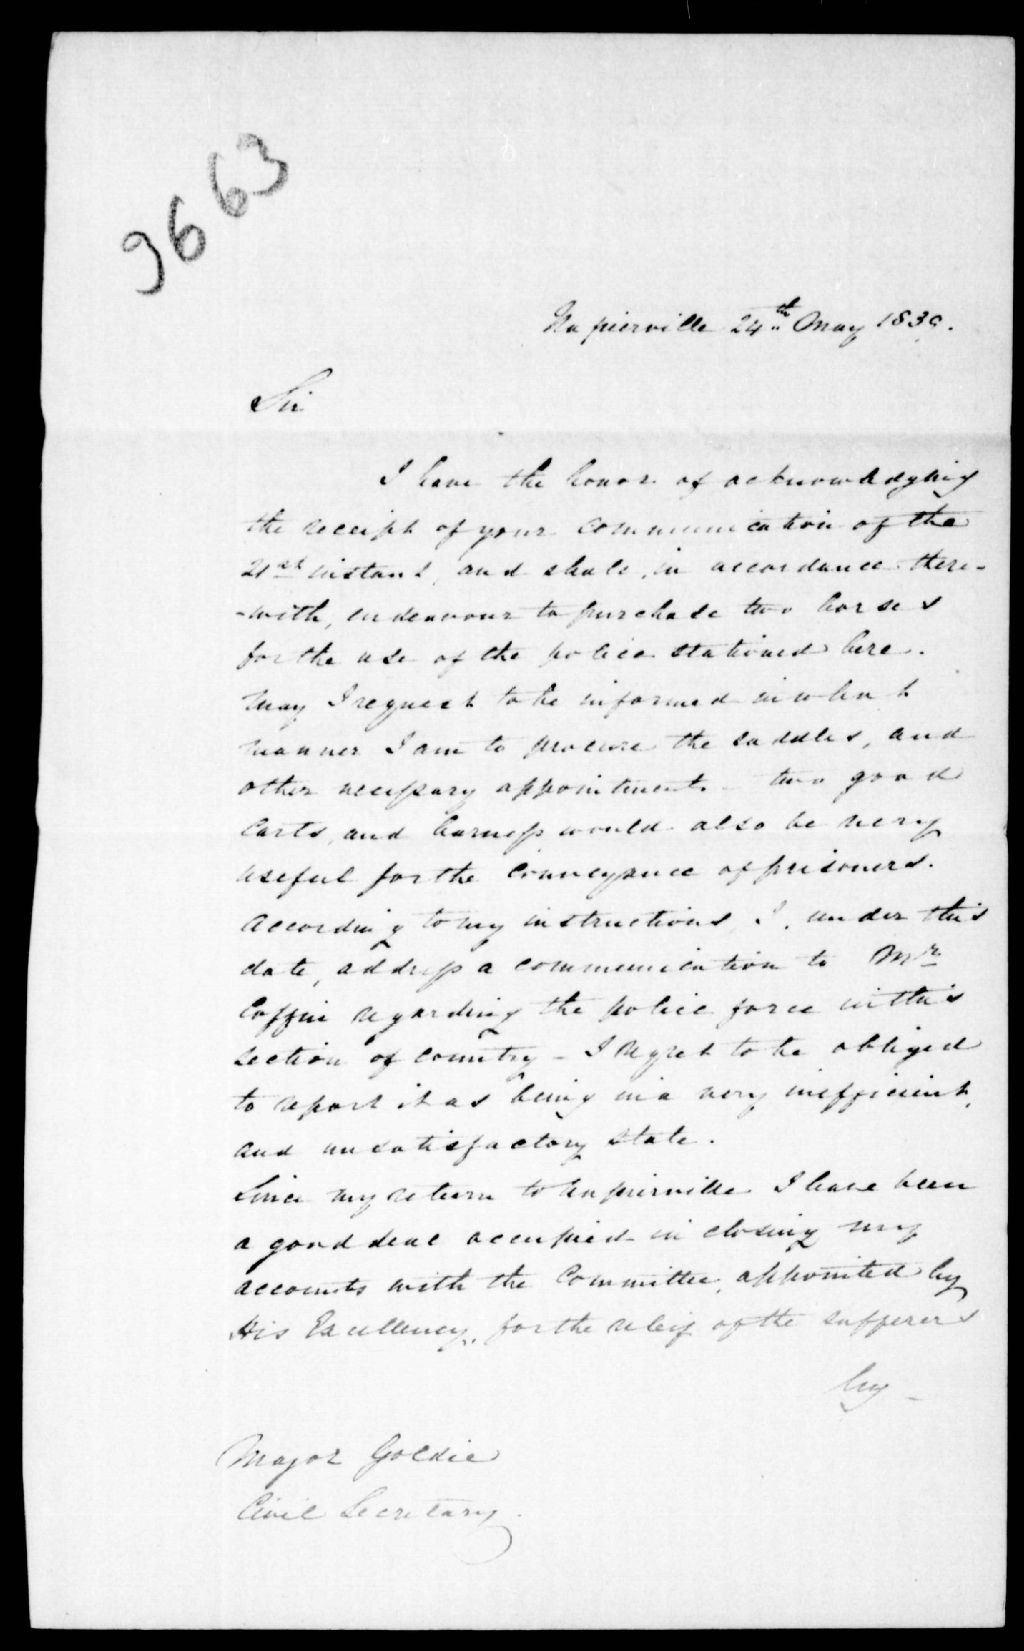 9663
Napierville 24th May 1839.
Sir
I have the honor of acknowledging
the receipt of your communication of the
21st instant, and shall, in accordance there-
-with, endeavour to purchase two horses
for the use of the police stationed here.
May I request to be informed in what
manner I am to procure the saddles, and
other necessary appointments - two good
Carts, and harness would also be very
useful for the conveyance of prisoners.
According to my instructions I, under this
date, address a communication to Mr
Coffin regarding the police force in this
section of country - I regret to be obliged
to report it as being in a very inefficient,
and unsatisfactory state.
Since my return to Napierville I have been
a good deal occupied in closing my
accounts with the Committee, appointed by
His Excellency, for the relief of the sufferers
by -
Major Goldie
Civil Secretary.